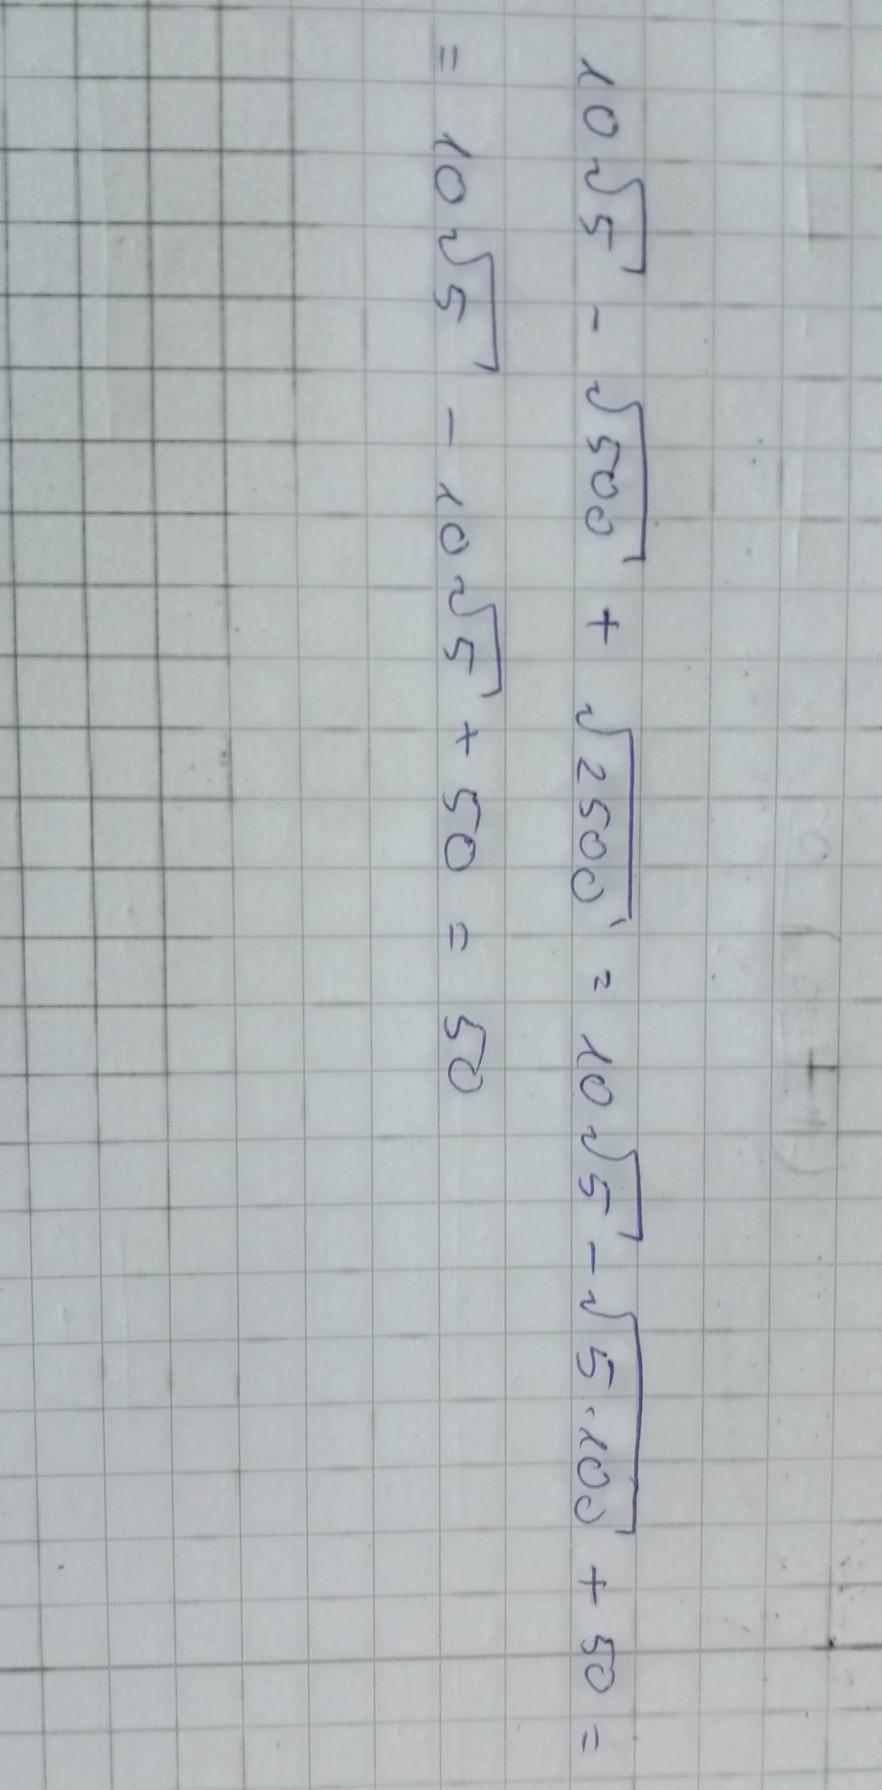 10√5 - √500 + √2500 = 10√5 - √5·100 + 50 =
= 10√5 - 10√5 + 50 = 50